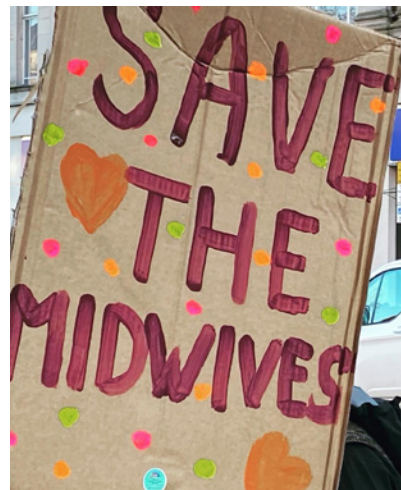 SAVE
THE
MIDWIVES